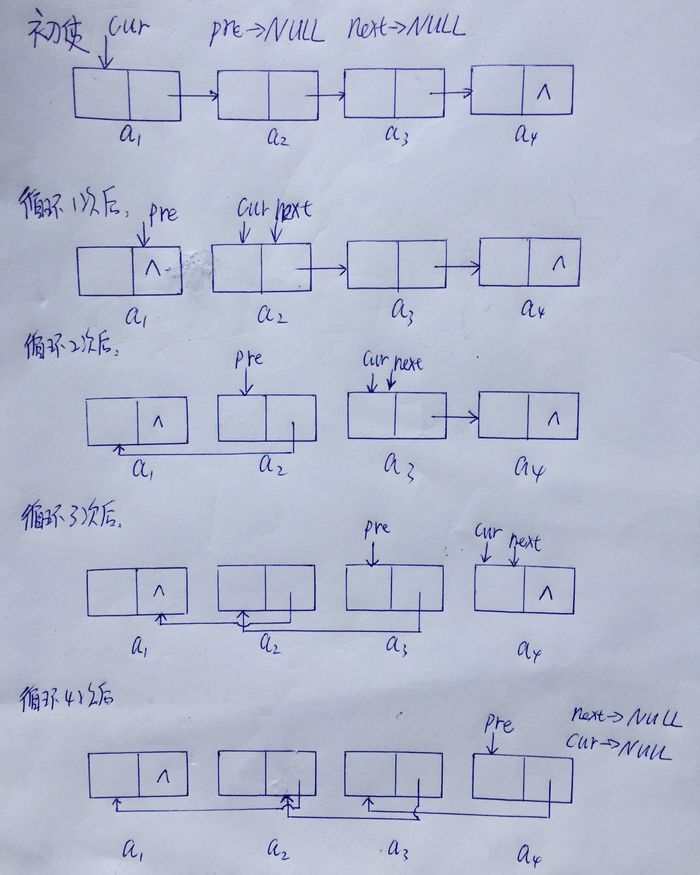 初使 cur pre→NULL next→NULL
∧
a₁ a₂ a₃ a₄
循环1次后, pre cur next
∧ ∧
a₁ a₂ a₃ a₄
循环2次后,
pre cur next
∧ ∧
a₁ a₂ a₃ a₄
循环3次后,
pre cur next
∧ ∧
a₁ a₂ a₃ a₄
循环4次后
pre next→NULL
cur→NULL
∧
a₁ a₂ a₃ a₄